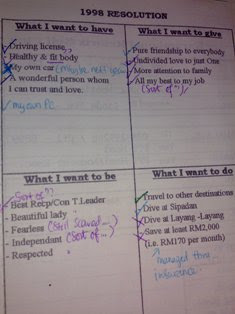 1998 RESOLUTION
What I want to have
- Driving license
- Healthy & fit body
- My own car (Maybe next year)
- A wonderful person whom
I can trust and love.
- my own PC
What I want to give
- Pure friendship to everybody
- Undivided love to just One
- More attention to family
- All my best to my job
(Sort of?)
What I want to be
(Sort of??
- Best Recp/Con T.Leader
- Beautiful lady
- Fearless (Still scared...)
- Independant (Sort of...)
- Respected
What I want to do
- Travel to other destinations
- Dive at Sipadan
- Dive at Layang -Layang
- Save at least RM2,000
(i.e. RM170 per month)
managed thru
insurance